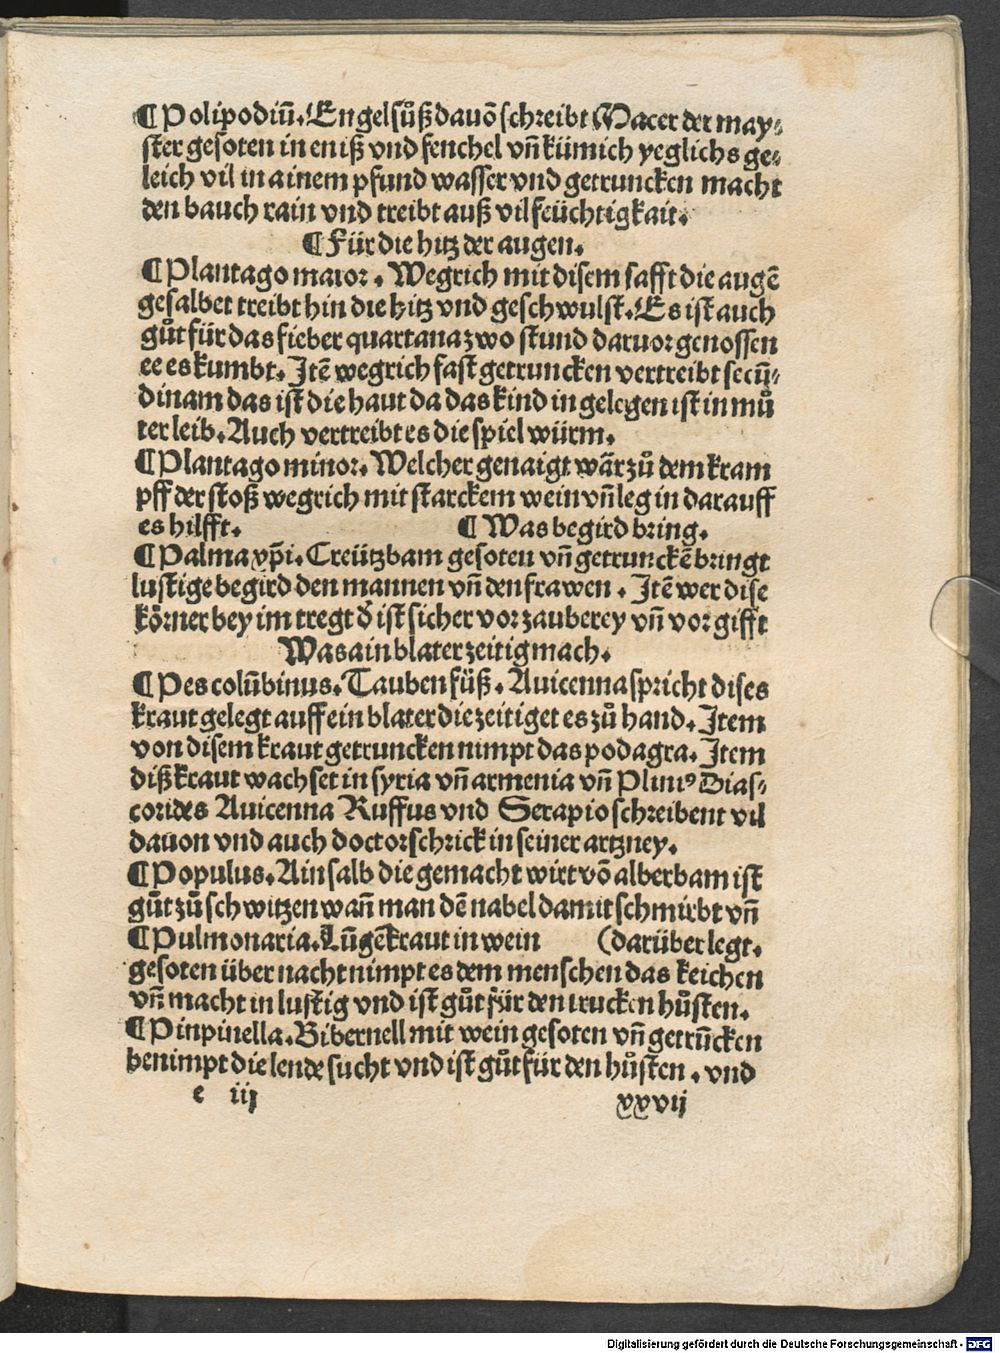 ¶ Polipodiū. Engelsůß dauō schreibt Macer der may⸗
ster gesoten in eniß vnd fenchel vn̄ kümich yeglichs ge⸗
leich vil in ainem pfund wasser vnd getruncken macht
den bauch rain vnd treibt auß vil feüchtigkait.
¶ Für die hitz der augen.
¶ Plantago maior. Wegrich mit disem safft die augē
gesalbet treibt hin die hitz vnd geschwulst. Es ist auch
gůt für das fieber quartana zwo stund daruor genossen
ee es kumbt. Itē wegrich fast getruncken vertreibt secū⸗
dinam das ist die haut da das kind in gelegen ist in mů
ter leib. Auch vertreibt es die spiel würm.
¶ Plantago minor. Welcher genaigt wār zů dem kram
pff der stoß wegrich mit starckem wein vn̄ leg in darauff
es hilfft. ¶ Was begird bring.
¶ Palma xp̄i. Creützbam gesoten vn̄ getrunckē bringt
lustige begird den mannen vn̄ den frawen. Itē wer dise
körner bey im tregt d̓ ist sicher vor zauberey vn̄ vor gifft
Was ain blater zeitig mach.
¶ Pes colūbinus. Tauben füß. Auicenna spricht dises
kraut gelegt auff ein blater die zeitiget es zů hand. Item
von disem kraut getruncken nimpt das podagra. Item
diß kraut wachset in syria vn̄ armenia vn̄ Pliniꝰ Dias⸗
corides Auicenna Ruffus vnd Serapio schreibent vil
dauon vnd auch doctor schrick in seiner artzney.
¶ Populus. Ain salb die gemacht wirt vō alberbam ist
gůt zů schwitzen wan̄ man dē nabel damit schmirbt vn̄
¶ Pulmonaria. Lūgēkraut in wein (darüber legt.
gesoten über nacht nimpt es dem menschen das keichen
vn̄ macht in lustig vnd ist gůt für den trucken hůsten.
¶ Pinpinella. Bibernell mit wein gesoten vn̄ getrūcken
benimpt die lende sucht vnd ist gůt für den hůsten. vnd
e iij xxvij
Digitalisierung gefördert durch die Deutsche Forschungsgemeinschaft - DFG